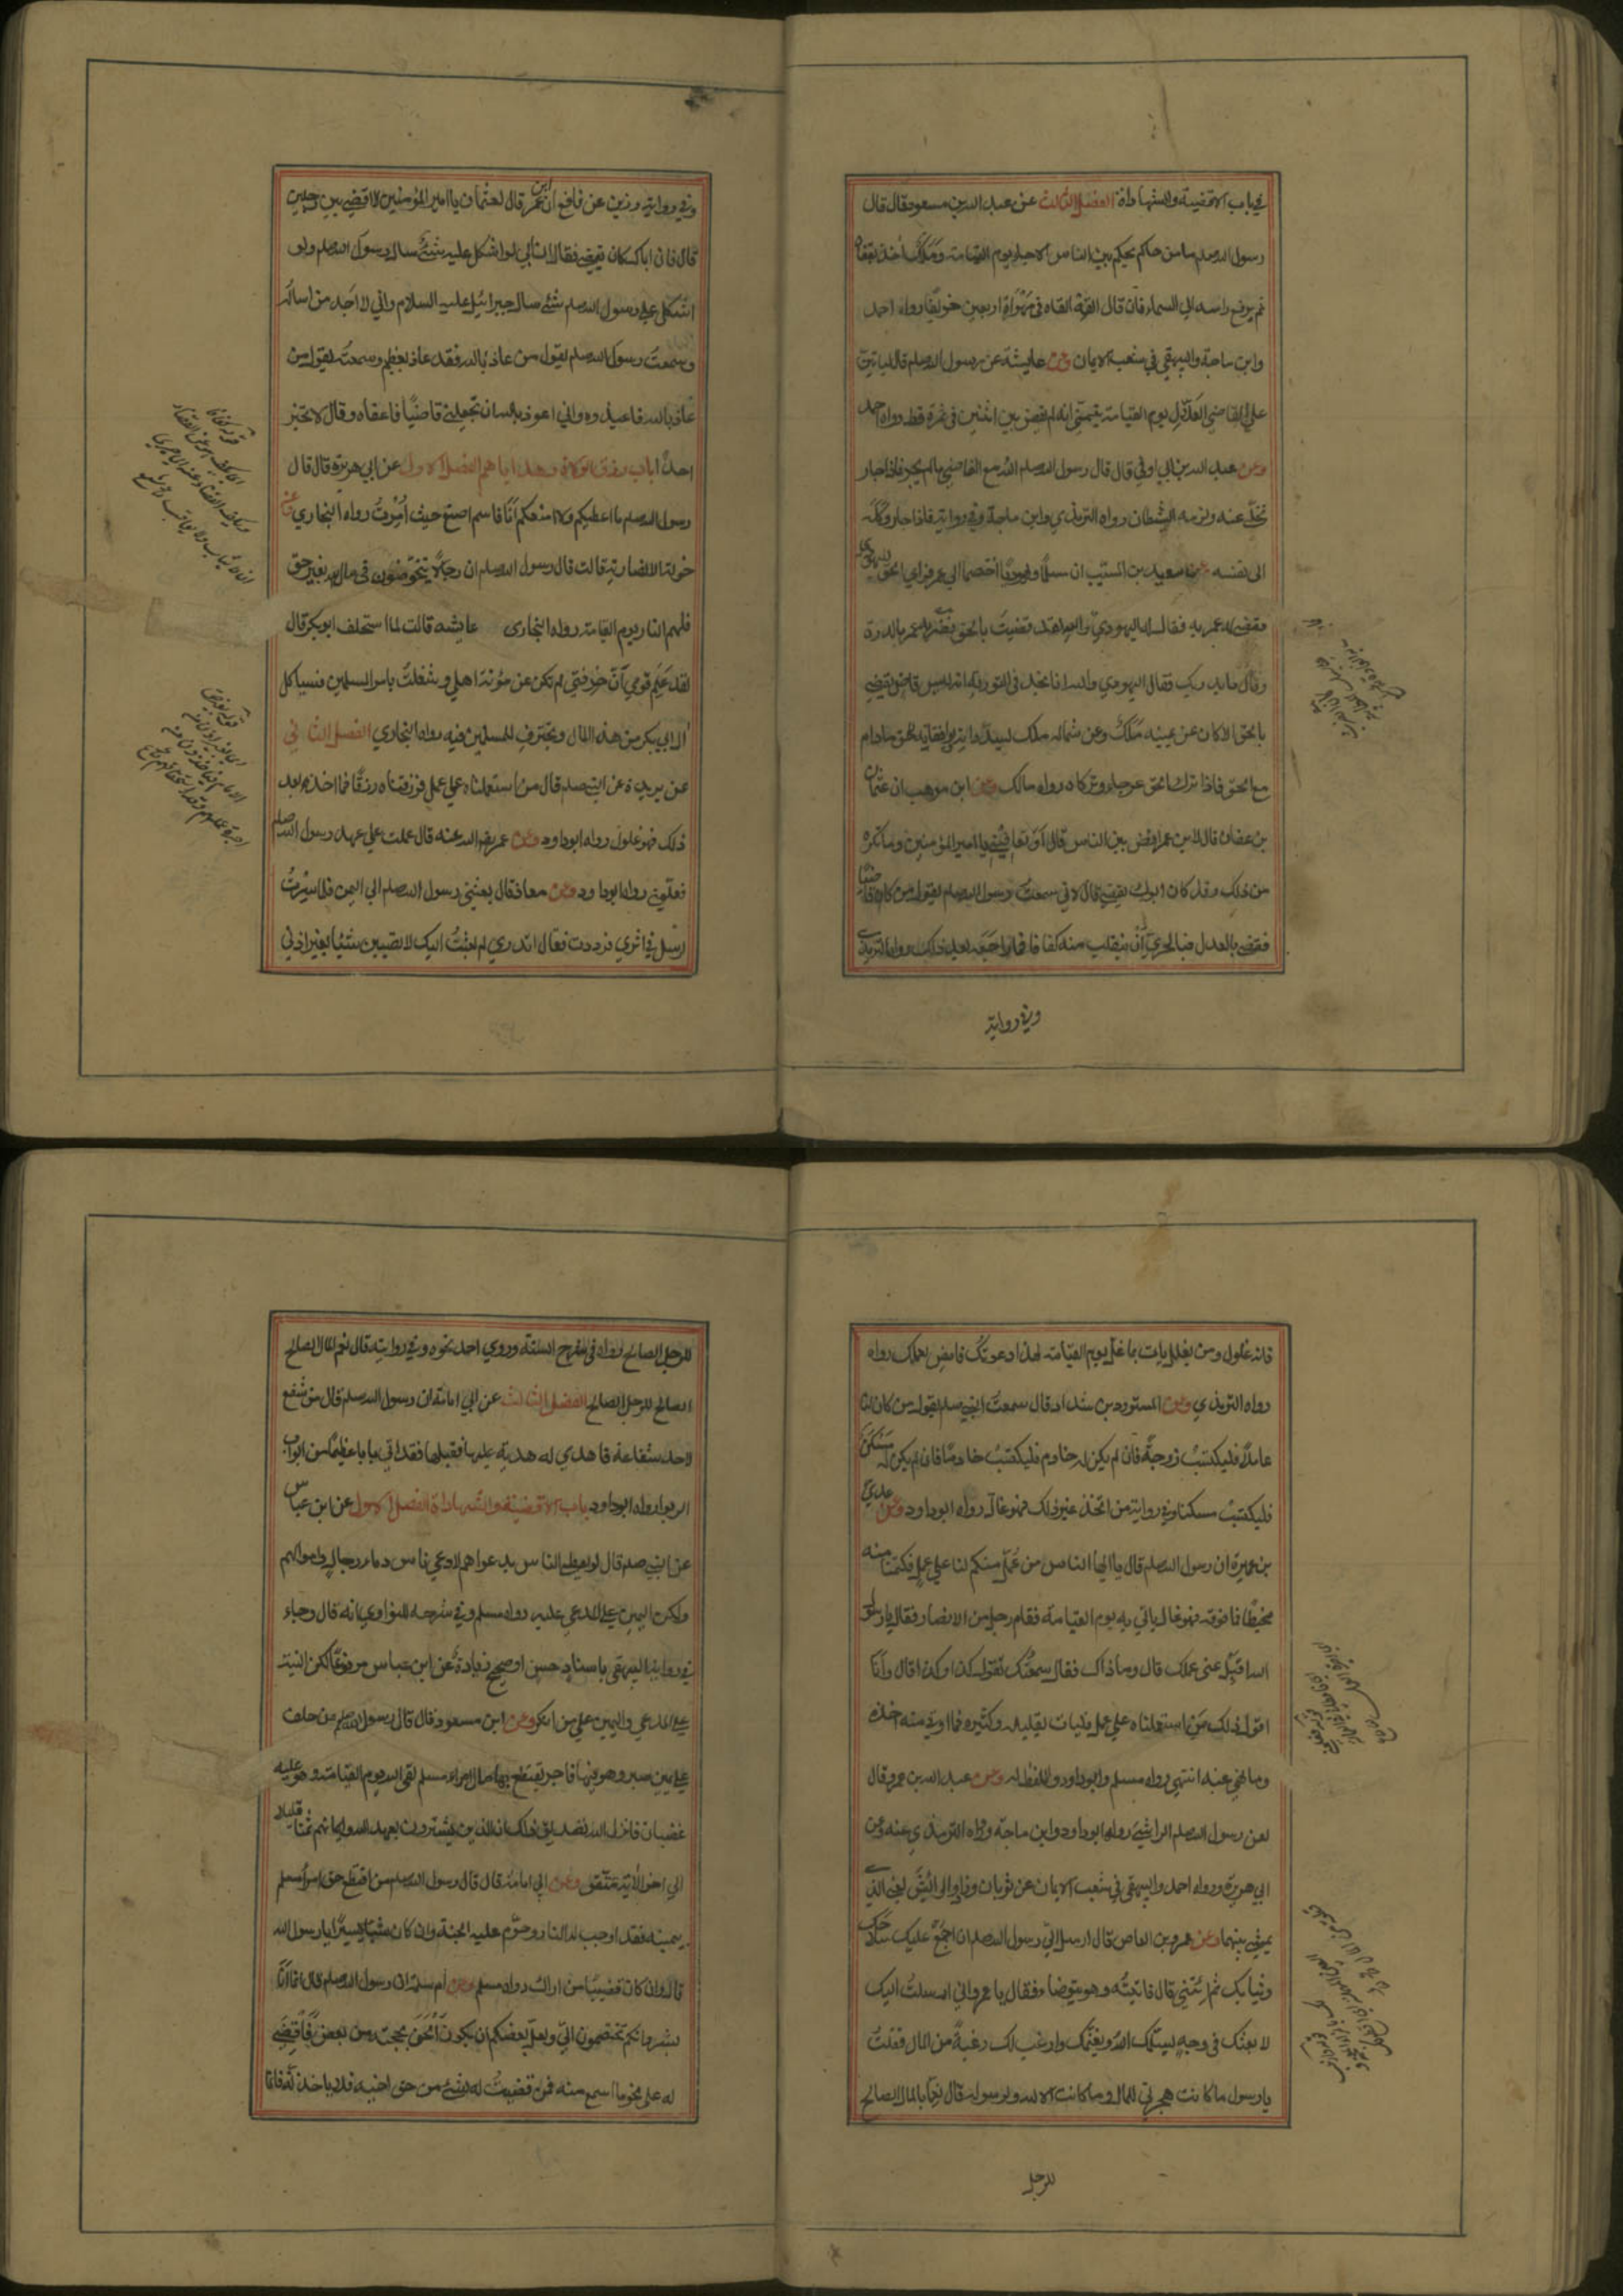 في باب الاقضية والشهادة الفصل الثالث عن عبد الله بن مسعود قال قال
رسول الله صلعم ما من حاكم يحكم بين الناس الا جاء يوم القيامة وملك اخذ بقفاه
ثم يرفع راسه الى السماء فان قال القه القاه في مهواة اربعين خريفا رواه احمد
وابن ماجة والبيهقي في شعب الايمان وعن عايشة عن رسول الله صلعم قال لياتين
على القاضي العدل يوم القيامة يتمنى انه لم يقض بين اثنين في تمرة قط رواه احمد
وعن عبد الله بن ابي اوفى قال قال رسول الله صلعم الله مع القاضي ما لم يجر فاذا جار
تخلى عنه ولزمه الشيطان رواه الترمذي وابن ماجة وفي رواية فاذا جار وكله
الى نفسه وعن سعيد بن المسيب ان مسلما ويهوديا اختصما الى عمر فراى الحق لليهودي
فقضى له عمر به فقال له اليهودي والله لقد قضيت بالحق فضربه عمر بالدرة
وقال ما يدريك فقال اليهودي والله انا نجد في التورية انه ليس قاض يقضي
بالحق الا كان عن يمينه ملك وعن شماله ملك يسددانه ويوفقانه للحق ما دام
مع الحق فاذا ترك الحق عرجا وتركاه رواه مالك وعن ابن موهب ان عثمان
بن عفان قال لابن عمر اقض بين الناس قال او تعافيني يا امير المؤمنين وما تكره
من ذلك وقد كان ابوك يقضي قال لاني سمعت رسول الله صلعم يقول من كان قاضيا
فقضى بالعدل فبالحري ان ينقلب منه كفافا فما راجعه بعد ذلك رواه الترمذي
وفي رواية
وفي رواية رزين عن نافع ان ابن عمر قال لعثمان يا امير المؤمنين لا اقضي بين رجلين
قال فان اباك كان يقضي فقال ان ابي لو اشكل عليه شئ سال رسول الله صلعم ولو
اشكل على رسول الله صلعم شئ سال جبرائيل عليه السلام واني لا اجد من اساله
وسمعت رسول الله صلعم يقول من عاذ بالله فقد عاذ بعظيم وسمعته يقول من
عاذ بالله فاعيذوه واني اعوذ بالله ان تجعلني قاضيا فاعفاه وقال لا تخبر
احدا باب رزق الولاة وهداياهم الفصل الاول عن ابي هريرة قال قال
رسول الله صلعم ما اعطيكم ولا امنعكم انا قاسم اضع حيث امرت رواه البخاري وعن
خولة الانصارية قالت قال رسول الله صلعم ان رجالا يتخوضون في مال الله بغير حق
فلهم النار يوم القيامة رواه البخاري عايشة قالت لما استخلف ابو بكر قال
لقد علم قومي ان حرفتي لم تكن عن مؤنة اهلي وشغلت بامر المسلمين فسياكل
ال ابي بكر من هذا المال ويحترف للمسلمين فيه رواه البخاري الفصل الثاني
عن بريدة عن النبي صلعم قال من استعملناه على عمل فرزقناه رزقا فما اخذه بعد
ذلك فهو غلول رواه ابو داود وعن عمر رضي الله عنه قال عملت على عهد رسول الله صلعم
فعملني رواه ابو داود وعن معاذ قال بعثني رسول الله صلعم الى اليمن فلما سرت
ارسل في اثري فرددت فقال اتدري لم بعثت اليك لا تصيبن شيئا بغير اذني
فانه غلول ومن يغلل يات بما غل يوم القيامة لهذا دعوتك فامض لعملك رواه
رواه الترمذي وعن المستورد بن شداد قال سمعت النبي صلعم يقول من كان لنا
عاملا فليكتسب زوجة فان لم يكن له خادم فليكتسب خادما فان لم يكن له مسكن
فليكتسب مسكنا وفي رواية من اتخذ غير ذلك فهو غال رواه ابو داود وعن عدي
بن عميرة ان رسول الله صلعم قال يا ايها الناس من عمل منكم لنا على عمل فكتمنا منه
مخيطا فما فوقه فهو غال ياتي به يوم القيامة فقام رجل من الانصار فقال يا رسول
الله اقبل عني عملك قال وما ذاك فقال سمعتك تقول كذا وكذا قال وانا
اقول ذلك من استعملناه على عمل فليات بقليله وكثيره فما اوتي منه اخذه
وما نهي عنه انتهى رواه مسلم وابو داود واللفظ له وعن عبد الله بن عمرو قال
لعن رسول الله صلعم الراشي رواه ابو داود وابن ماجة ورواه الترمذي عنه وعن
ابي هريرة ورواه احمد والبيهقي في شعب الايمان عن ثوبان وزاد والرائش يعني الذي
يمشي بينهما وعن عمرو بن العاص قال ارسل الي رسول الله صلعم ان اجمع عليك سلاحك
وثيابك ثم ائتني قال فاتيته وهو يتوضاء فقال يا عمرو اني ارسلت اليك
لابعثك في وجه يسلمك الله ويغنمك وارغب لك رغبة من المال فقلت
يا رسول ما كانت هجرتي للمال وما كانت الا لله ولرسوله قال نعما بالمال الصالح
للرجل
للرجل الصالح رواه في شرح السنة وروى احمد نحوه وفي رواية قال نعم المال الصالح
الصالح للرجل الصالح الفصل الثالث عن ابي امامة ان رسول الله صلعم قال من شفع
لاحد شفاعة فاهدي له هدية عليها فقبلها فقد اتى بابا عظيما من ابواب
الربوا رواه ابو داود باب الاقضية والشهادة الفصل الاول عن ابن عباس
عن النبي صلعم قال لو يعطى الناس بدعواهم لادعى ناس دماء رجال واموالهم
ولكن اليمين على المدعى عليه رواه مسلم وفي شرحه للنواوي انه قال وجاء
في رواية البيهقي باسناد حسن او صحيح زيادة عن ابن عباس مرفوعا لكن البينة
على المدعي واليمين على من انكر وعن ابن مسعود قال قال رسول الله صلعم من حلف
على يمين صبر وهو فيها فاجر يقتطع بها مال امرء مسلم لقي الله يوم القيامة وهو عليه
غضبان فانزل الله تصديق ذلك ان الذين يشترون بعهد الله وايمانهم ثمنا قليلا
الى اخر الاية متفق وعن ابي امامة قال قال رسول الله صلعم من اقتطع حق امرأ مسلم
بيمينه فقد اوجب له النار وحرم عليه الجنة وان كان شيئا يسيرا يا رسول الله
قال وان كان قضيبا من اراك رواه مسلم وعن ام سلمة ان رسول الله صلعم قال انما انا
بشر وانكم تختصمون الي ولعل بعضكم ان يكون الحن بحجته من بعض فاقضي
له على نحو ما اسمع منه فمن قضيت له بشئ من حق اخيه فلا ياخذنه فانما